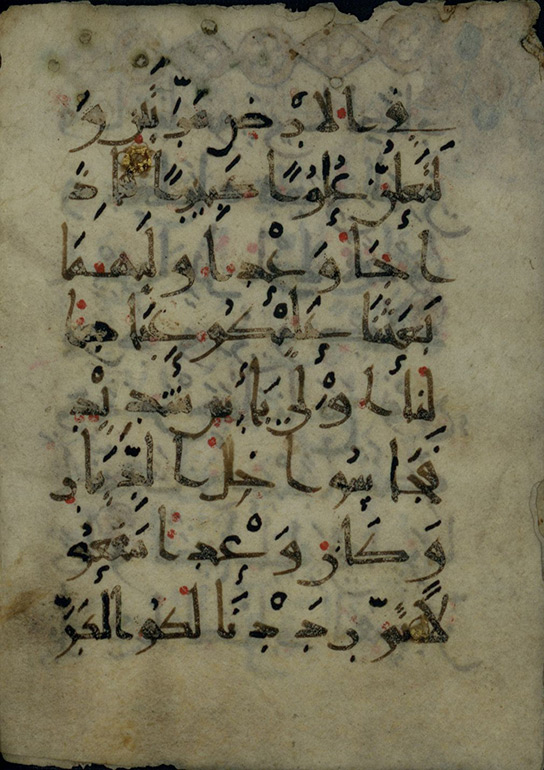 فِي الْأَرْضِ مَرَّتَيْنِ وَ
لَتَعْلُنَّ عُلُوًّا كَبِيرًا فَإِذَ
ا جَا وَعْدُ أُولَيهُمَا
بَعَثْنَا عَلَيْكُمْ عِبَادًا
لَنَا أُولِي بَأْسٍ شَدِيدٍ
فَجَاسُوا خِلَلَ الدِّيَارِ
وَكَانَ وَعْدًا مَفْعُو
لًا ثُمَّ رَدَدْنَا لَكُمُ الْكَرَّ